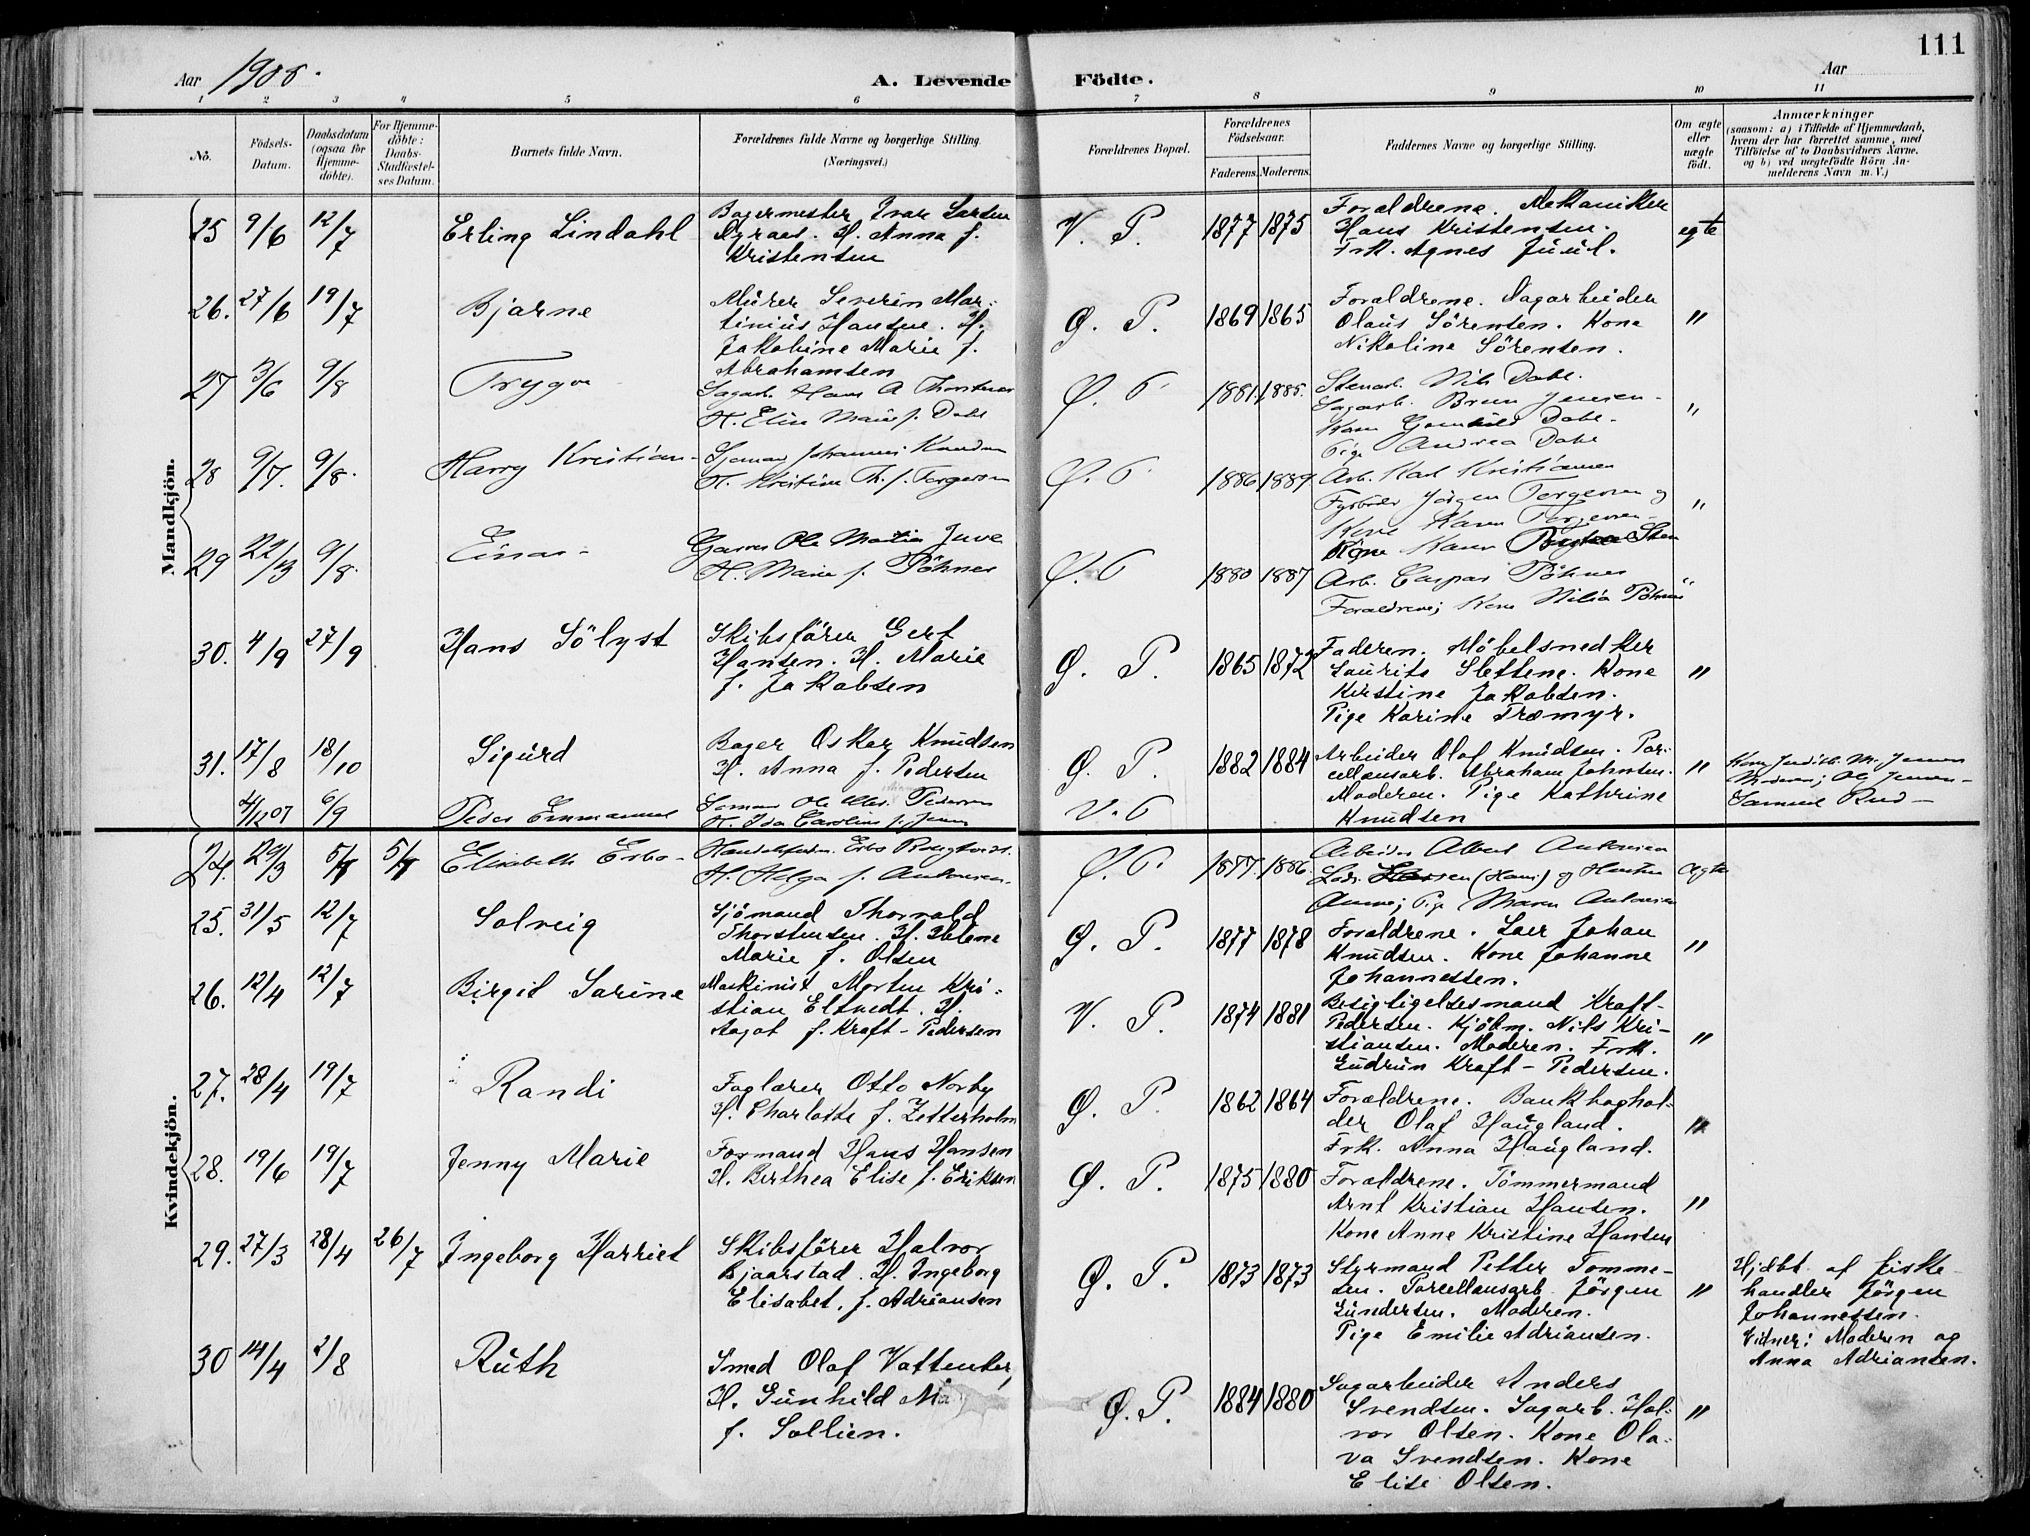 111
Aar 1908.
A. Levende Födte.
Aar
1 2 3 4 5 6 7 8 9 10 11
No.
Födsels-
Datum.
Daabsdatum
(ogsaa for
Hjemme-
döbte).
For Hjemme-
döbte:
Daabs-
Stadfæstel-
ses Datum.
Barnets fulde Navn.
Forældrenes fulde Navne og borgerlige Stilling.
(Næringsvei.)
Forældrenes Bopæl.
Forældrenes
Födselsaar.
Faderens. Moderens.
Faddernes Navne og borgerlige Stilling.
Om ægte
eller
uægte
födt.
Anmærkninger
(saasom: a) i Tilfælde af Hjemmedaab,
hvem der har forrettet samme, med
Tilföielse af to Daabsvidners Navne.
og b) ved uegtefödte Börn An-
melderens Navn m. V.)
Mandkjön.
25 9/6 12/7 Erling Lindahl
Bagermester Ivar Larsen
H. Anna f.
Kristensen
V. P. 1877 1875
Foraldrene. Mekaniker
Hans Kristensen.
Frk. Agnes Juul.
egte
26. 27/6 19/7 Bjarne
Murer Severin Mar-
tinius Hansen. H.
Jakobine Marie f.
Abrahamsen
Ø. P. 1869 1865
Foraldrene. Sagarbeider
Olaus Sörensen. Kone
Nikoline Sörensen.
"
27 3/6 9/8 Trygve
Sagarb. Hans A Thorstensen
H. Elin Marie f. Dahl
Ø. P 1881 1885.
Stenarb. Nils Dahl.
Sagarb. Brun Jensen-
Kone Gunhild Dahl-
Pige Andrea Dahl
"
28 9/7. 9/8. Harry Kristian-
Sjömand Johannes Knudsen
H. Kristine Th. f. Torgersen
Ø. P 1886 1889
Arb. Karl Kristiansen
Fyrböder Jörgen Torgersen og
Kone Karen Torgersen-
Kone Karen
"
29 22/3 9/8. Einar-
Garver Ole Martin Juve
H. Marie f. Pöhner
Ø. P 1880 1887
Arb. Caspar Pöhner
Foraldrene; Kone Pöhner
"
30. 4/9 27/9 Hans Sölyst
Skibsförer Gert
Hansen. H. Marie
f. Jakobsen
Ø. P. 1865 1872
Faderen. Möbelsnedker
Laurits Slettene. Kone
Kirstine Jakobsen.
Pige Karine Træmyr.
"
31. 17/8 18/10 Sigurd
Bager Oskar Knudsen
H. Anna f. Pedersen
Ø. P. 1882 1884
Arbeider Olaf Knudsen. Por-
cellænsarb. Abraham Johnsen.
Moderen. Pige Kathrine
Knudsen
"
4/12 07 6/9 Peder Emmanuel
Sömand Ole Pedersen
H. Ida Caroline f. Jensen
V. P
Jensen
Moderen; Ole Jensen-
Samuel Rud-
Kvindekjön.
24. 29/3 5/4 5/4 Elisabeth Erbo-
Erbo
H. Helga f. Antonsen.
Ø. P. 1877. 1886.
Arbeider Albert Antonsen
(Hans) og Hustru
Anne; Pige Maren Antonsen
Ægte
25. 31/5 12/7 Solveig
Sjömand Thorvald
Thorstensen. H. Helene
Marie f. Olsen
Ø. P. 1877 1878
Foraldrene. Johan
Knudsen. Kone Johanne
Johannessen.
"
26. 12/4 12/7 Birgit Sarine
Maskinist Morten Kri-
stian Eltvedt. H.
Aagot f. Kraft-Pedersen
V. P. 1874 1881
Besigtigelsesmand Kraft-
Pedersen. Kjöbm. Nils Kri-
stiansen. Moderen. Frk.
Gudrun Kraft-Pedersen.
"
27. 28/4 19/7 Randi
Faglærer Otto Norby
H. Charlotte f. Zetterholm
Ø. P. 1862 1864
Foraldrene. Bankboghol-
der Olaf Haugland.
Frk. Anna Haugland.
"
28. 19/6 19/7 Jenny Marie
Formand Hans Hansen
H. Berthea Elise f. Eriksen
Ø. P. 1875 1880
Foraldrene. Tömmermand
Arnt Kristian Hansen.
Kone Anne Kristine Hansen
"
29. 27/3 28/4 26/7 Ingeborg Harriet
Skibsförer Halvor
Bjaarstad. H. Ingeborg
Elisabet, f. Adriansen
Ø. P. 1873 1873
Styrmand Petter Tomme-
sen. Porcellænsarb. Jörgen
Gundersen. Moderen.
Pige Emilie Adriansen.
"
Hjdbt. af fiske
handler Jörgen
Johannessen.
Vidner: Moderen og
Anna Adriansen.
30 14/4 2/8 Ruth
Smed Olaf Vattenber
H. Gunhild
f. Sollien.
Ø. P. 1884 1880
Sagarbeider Anders
Svendsen. Sagarb. Hal-
vor Olsen. Kone Ola-
va Svendsen. Kone
Elise Olsen.
"